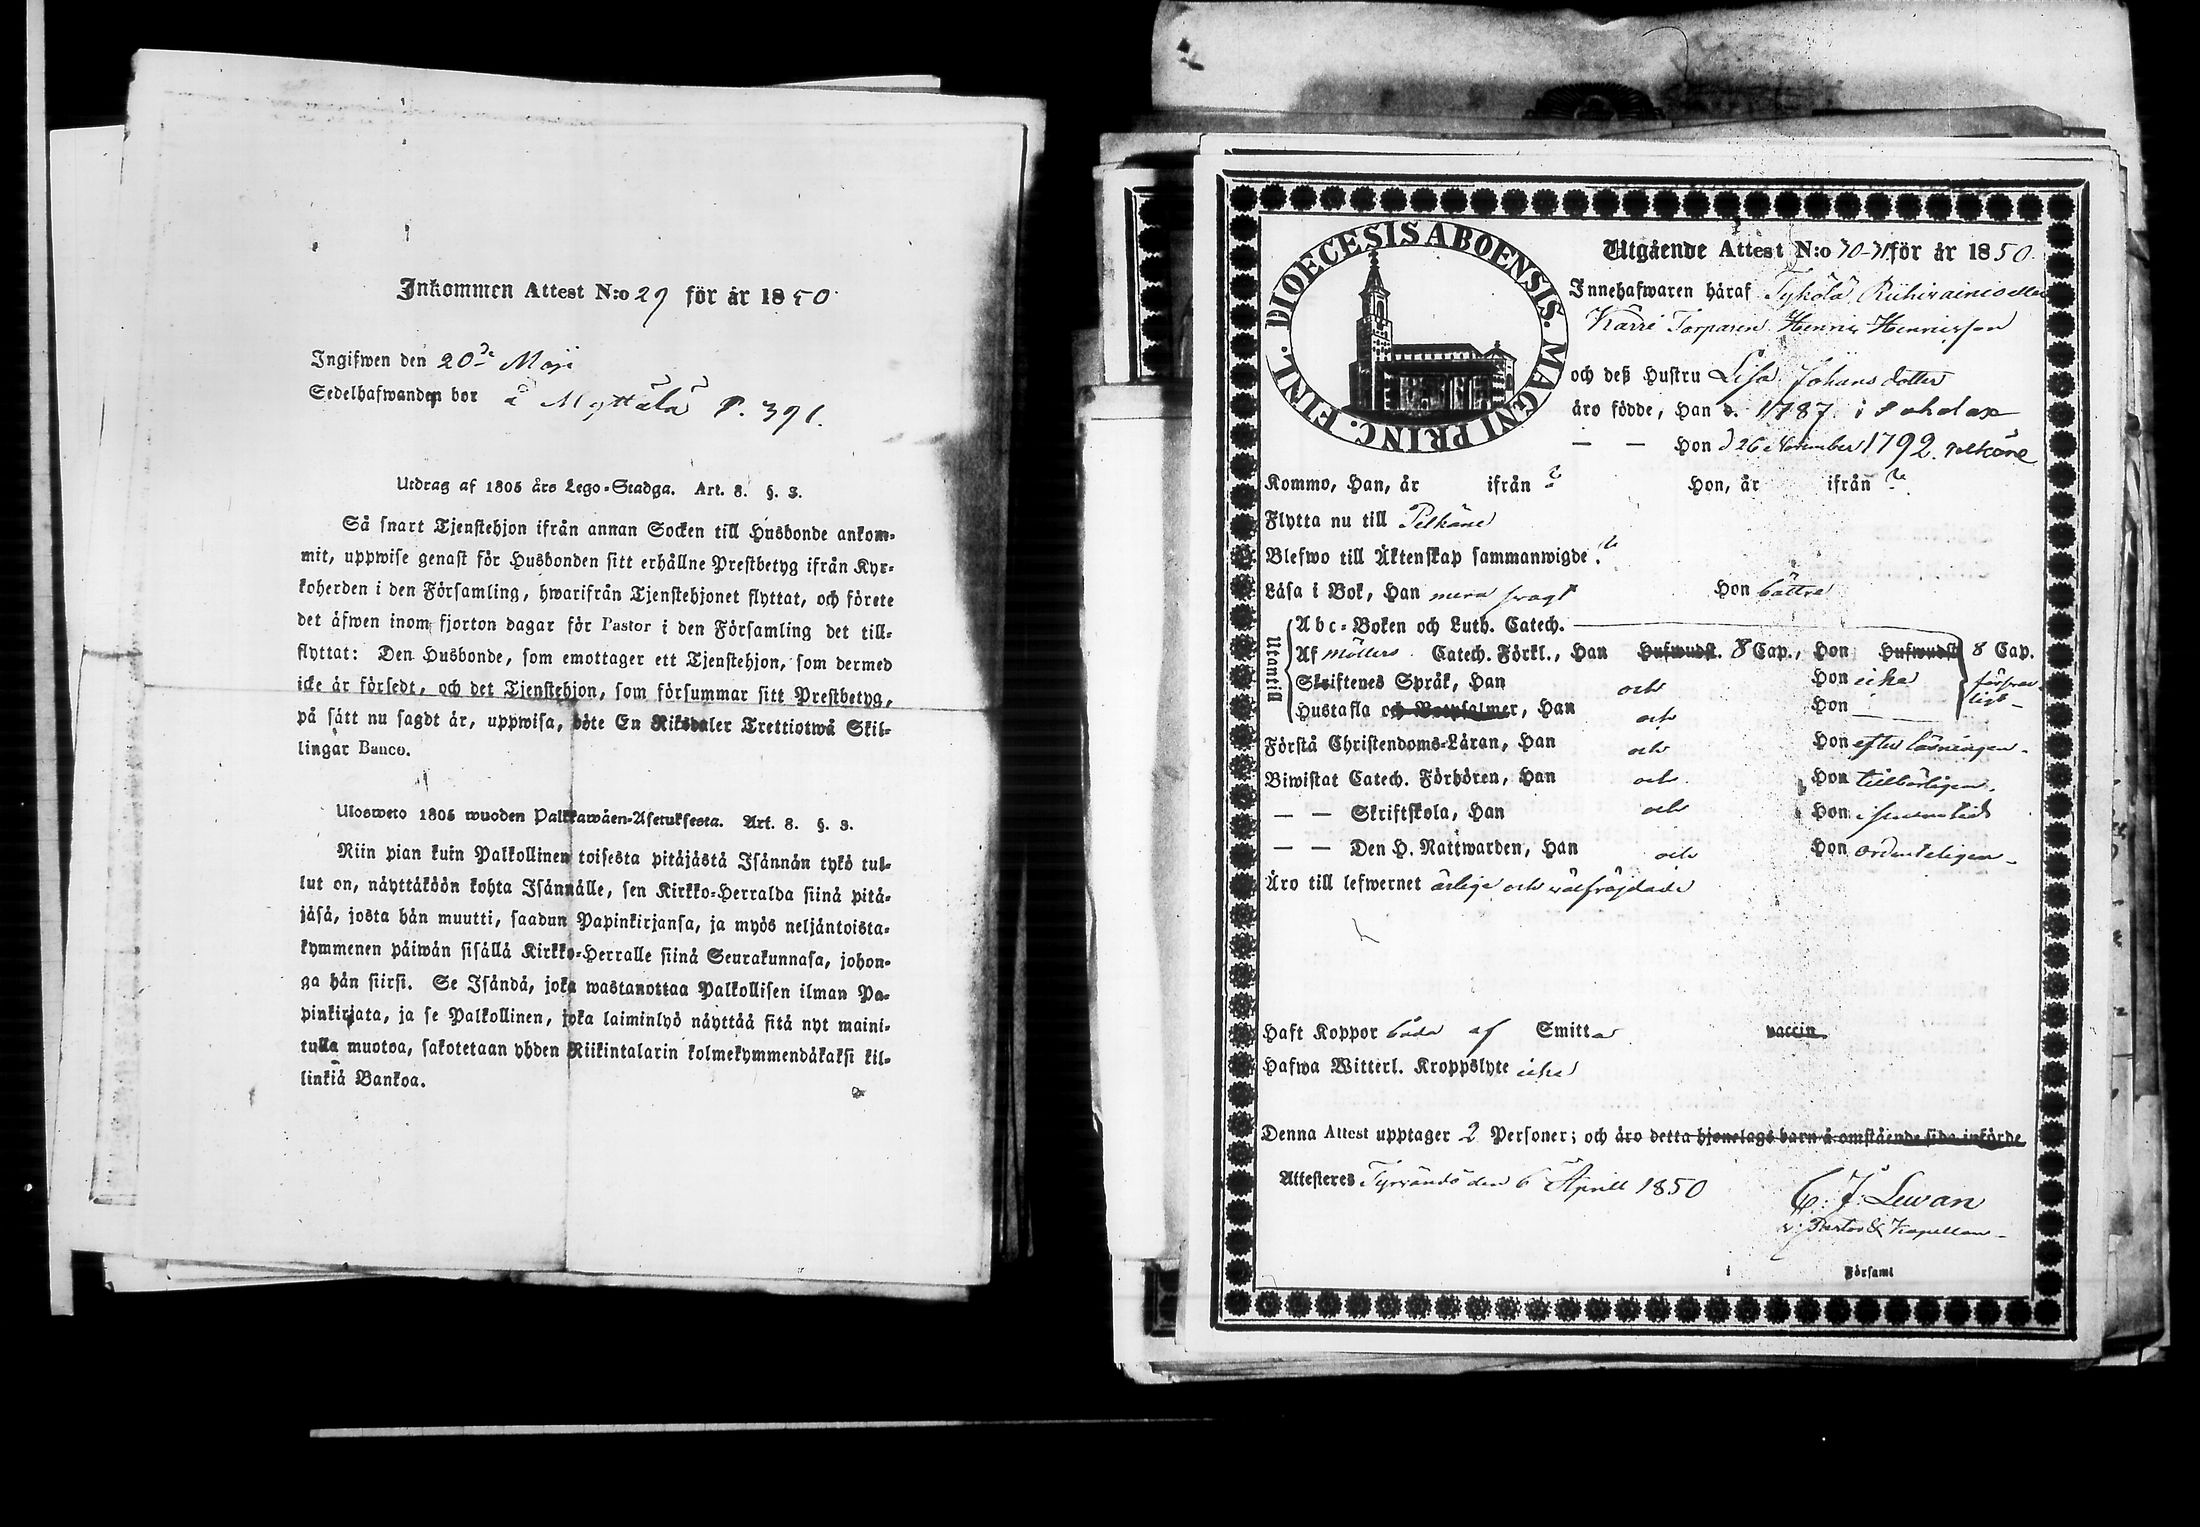 Inkommen Attest N:o 29 för år 1850.
Ingifwen den 20de Maji
Sedelhafwanden bor å Myttälä P. 391.
Utdrag af 1805 års Lego-Stadga. Art. 8. §. 3.
Så snart Tjenstehjon ifrån annan Socken till Husbonde ankom-
mit, uppwise genast för Husbonden sitt erhållne Prestbetyg ifrån Kyr-
koherden i den Församling, hwarifrån Tjenstehjonet flyttat, och förete
det äfwen inom fjorton dagar för Pastor i den Församling det till-
flyttat: Den Husbonde, som emottager ett Tjenstehjon, som dermed
icke är försedt, och det Tjenstehjon, som försummar sitt Prestbetyg,
på sätt nu sagdt är, uppwisa, böte En Riksdaler Trettiotwå Skil-
lingar Banco.
Ulosweto 1805 wuoden Palkkawäen-Asetuksesta. Art. 8. §. 3.
Niin pian kuin Palkollinen toisesta pitäjästä Isännän tykö tul-
lut on, näyttäköön kohta Isännälle, sen Kirkko-Herralda siinä pitä-
jäsä, josta hän muutti, saadun Papinkirjansa, ja myös neljäntoista-
kymmenen päiwän sisällä Kirkko-Herralle siinä Seurakunnasa, johon-
ga hän siirsi. Se Isändä, joka wastanottaa Palkollisen ilman Pa-
pinkirjata, ja se Palkollinen, joka laiminlyö näyttää sitä nyt maini-
tulla muotoa, sakotetaan yhden Riikintalarin kolmekymmendäkaksi kil-
linkiä Bankoa.
DIOECESIS ABOENSIS. MAGNI PRINC. FINL.
Utgående Attest N:o 70-71 för år 1850.
Innehafwaren häraf Tykölä Riihirainio eller
Karri Torparen Henric Henricsson
och deß Hustru Lisa Johansdotter
äro födde, Han d. 1787. i Sahalax
— — Hon d 26 November 1792. Pelkäne
Kommo, Han, år ifrån ? Hon, år ifrån ?
Flytta nu till Pelkäne
Blefwo till Äktenskap sammanwigde ?
Läsa i Bok, Han mera swagt Hon bättre
Utantil
Abc-Boken och Luth. Catech.
Af Möllers Catech. Förkl., Han Hufwudst. 8 Cap., Hon Hufwudst 8 Cap.
Skriftenes Språk, Han och Hon icke förswar-
ligt-
Hustafla och Botpsalmer, Han och Hon
Förstå Christendoms-Läran, Han och Hon efter läsningen-
Biwistat Catech. Förhören, Han och Hon tillbörligen.
— — Skriftskola, Han och Hon i sinom tid
— — Den H. Nattwarden, Han och Hon ordenteligen-
Äro till lefwernet ärlige och wälfräjdade
Haft Koppor båda af Smitta vaccin
Hafwa Witterl. Kroppslyte icke
Denna Attest upptager 2 Personer; och äro detta hjonelags barn å omstående sida införde
Attesteres Tyrvändö den 6 April 1850
C. J. Lewan
v. Pastor & Kapellan-
i Förkaml